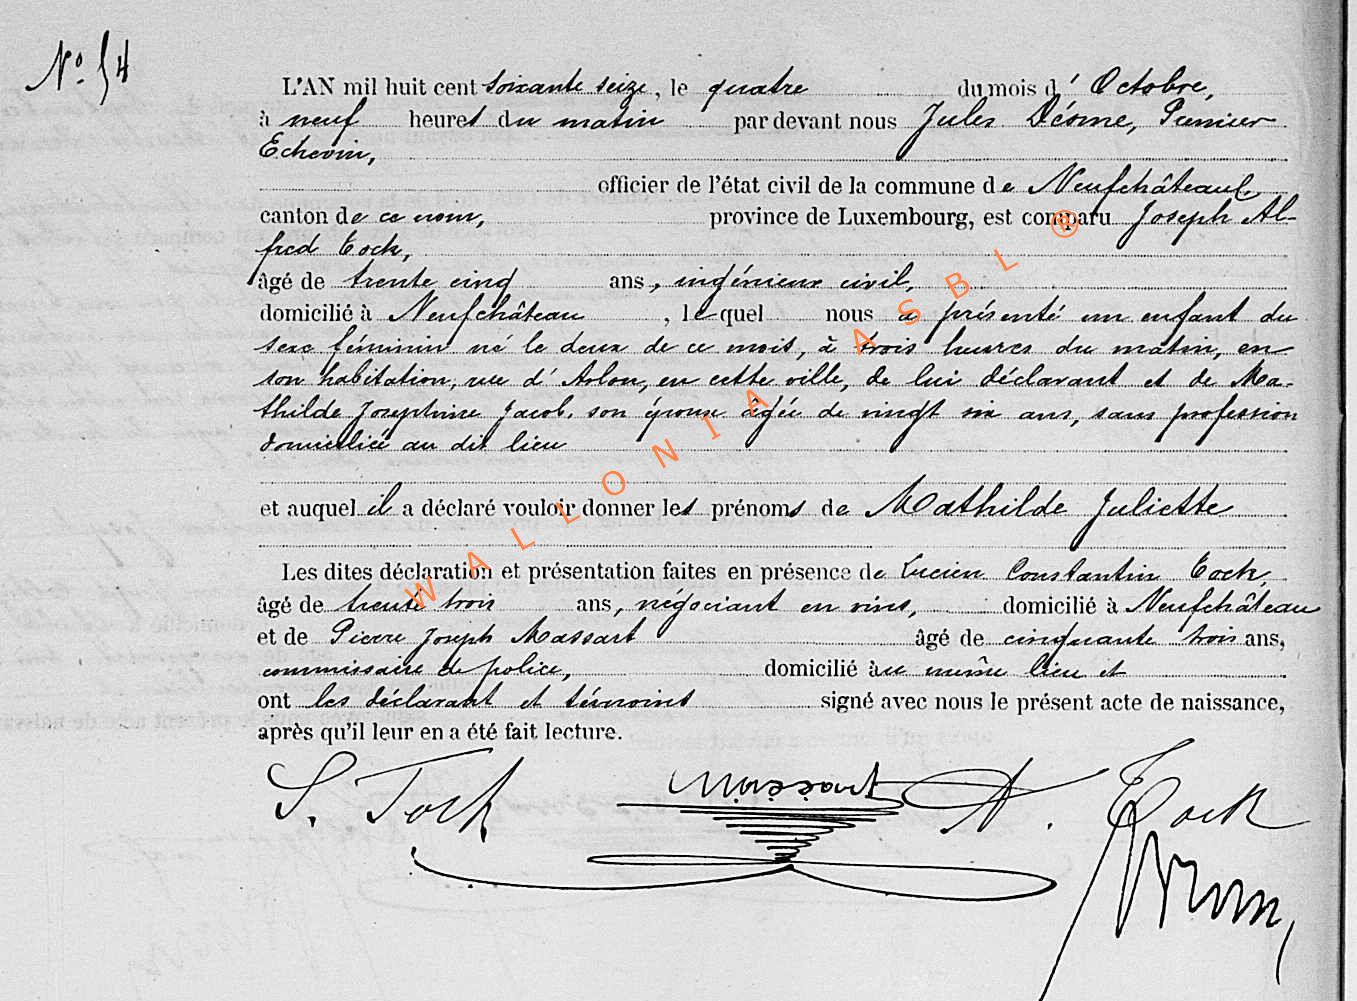 N° 54
L'AN mil huit cent soixante seize, le quatre du mois d' Octobre,
à neuf heures du matin par devant nous Jules Décome, Premier
Echevin,
officier de l'état civil de la commune de Neufchâteau,
canton de ce nom, province de Luxembourg, est comparu Joseph Al-
fred Tock,
âgé de trente cinq ans, ingénieur civil,
domicilié à Neufchâteau, lequel nous a présenté un enfant du
sexe féminin né le deux de ce mois, à trois heures du matin, en
son habitation, rue d'Arlon, en cette ville, de lui déclarant et de Ma-
thilde Josephine Jacob, son épouse âgée de vingt six ans, sans profession
domiciliée au dit lieu
et auquel il a déclaré vouloir donner les prénoms de Mathilde Juliette
Les dites déclaration et présentation faites en présence de Lucien Constantin Tock,
âgé de trente trois ans, négociant en vins, domicilié à Neufchâteau
et de Pierre Joseph Massart âgé de cinquante trois ans,
commissaire de police, domicilié au même lieu et
ont les déclarant et témoins signé avec nous le présent acte de naissance,
après qu'il leur en a été fait lecture.
Tock Massart A. Tock
WALLONIA ASBL ®